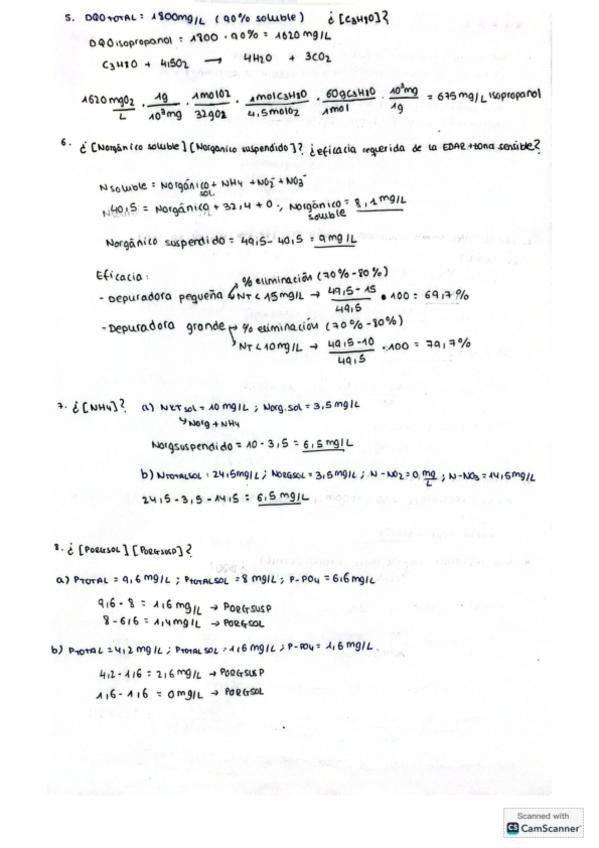 5. DQO TOTAL = 1800mg/L (90% soluble) ¿[C3H8O]?
DQO isopropanol = 1800 · 90% = 1620 mg/L
C3H8O + 4,5O2 → 4H2O + 3CO2
1620 mgO2/L · 1g/10³mg · 1molO2/32gO2 · 1molC3H8O/4,5molO2 · 60gC3H8O/1mol · 10³mg/1g = 675 mg/L isopropanol
6. ¿[Norgánico soluble][Norganico suspendido]? ¿eficacia requerida de la EDAR + zona sensible?
Nsoluble = Norgánico sol + NH4 + NO2⁻ + NO3⁻
40,5 = Norgánico + 32,4 + 0; Norgánico soluble = 8,1 mg/L
Norgánico suspendido = 49,5 - 40,5 = 9 mg/L
Eficacia:
- Depuradora pequeña → % eliminación (70% - 80%)
→ NT < 15 mg/L → 49,5 - 15/49,5 · 100 = 69,7%
- Depuradora grande → % eliminación (70% - 80%)
→ NT < 10 mg/L → 49,5 - 10/49,5 · 100 = 79,7%
7. ¿[NH4]? a) NKT sol = 10 mg/L; Norg.sol = 3,5 mg/L
↳ Norg + NH4
Norgsuspendido = 10 - 3,5 = 6,5 mg/L
b) NTOTALSOL = 24,5mg/L; NORGSOL = 3,5mg/L; N-NO2 = 0 mg/L; N-NO3 = 14,5mg/L
24,5 - 3,5 - 14,5 = 6,5 mg/L
8. ¿[PORGSOL][PORGSUSP]?
a) PTOTAL = 9,6 mg/L; PTOTALSOL = 8 mg/L; P-PO4 = 6,6 mg/L
9,6 - 8 = 1,6 mg/L → PORGSUSP
8 - 6,6 = 1,4 mg/L → PORGSOL
b) PTOTAL = 4,2 mg/L; PTOTALSOL = 1,6 mg/L; P-PO4 = 1,6 mg/L.
4,2 - 1,6 = 2,6 mg/L → PORGSUSP
1,6 - 1,6 = 0 mg/L → PORGSOL
Scanned with
CS CamScanner